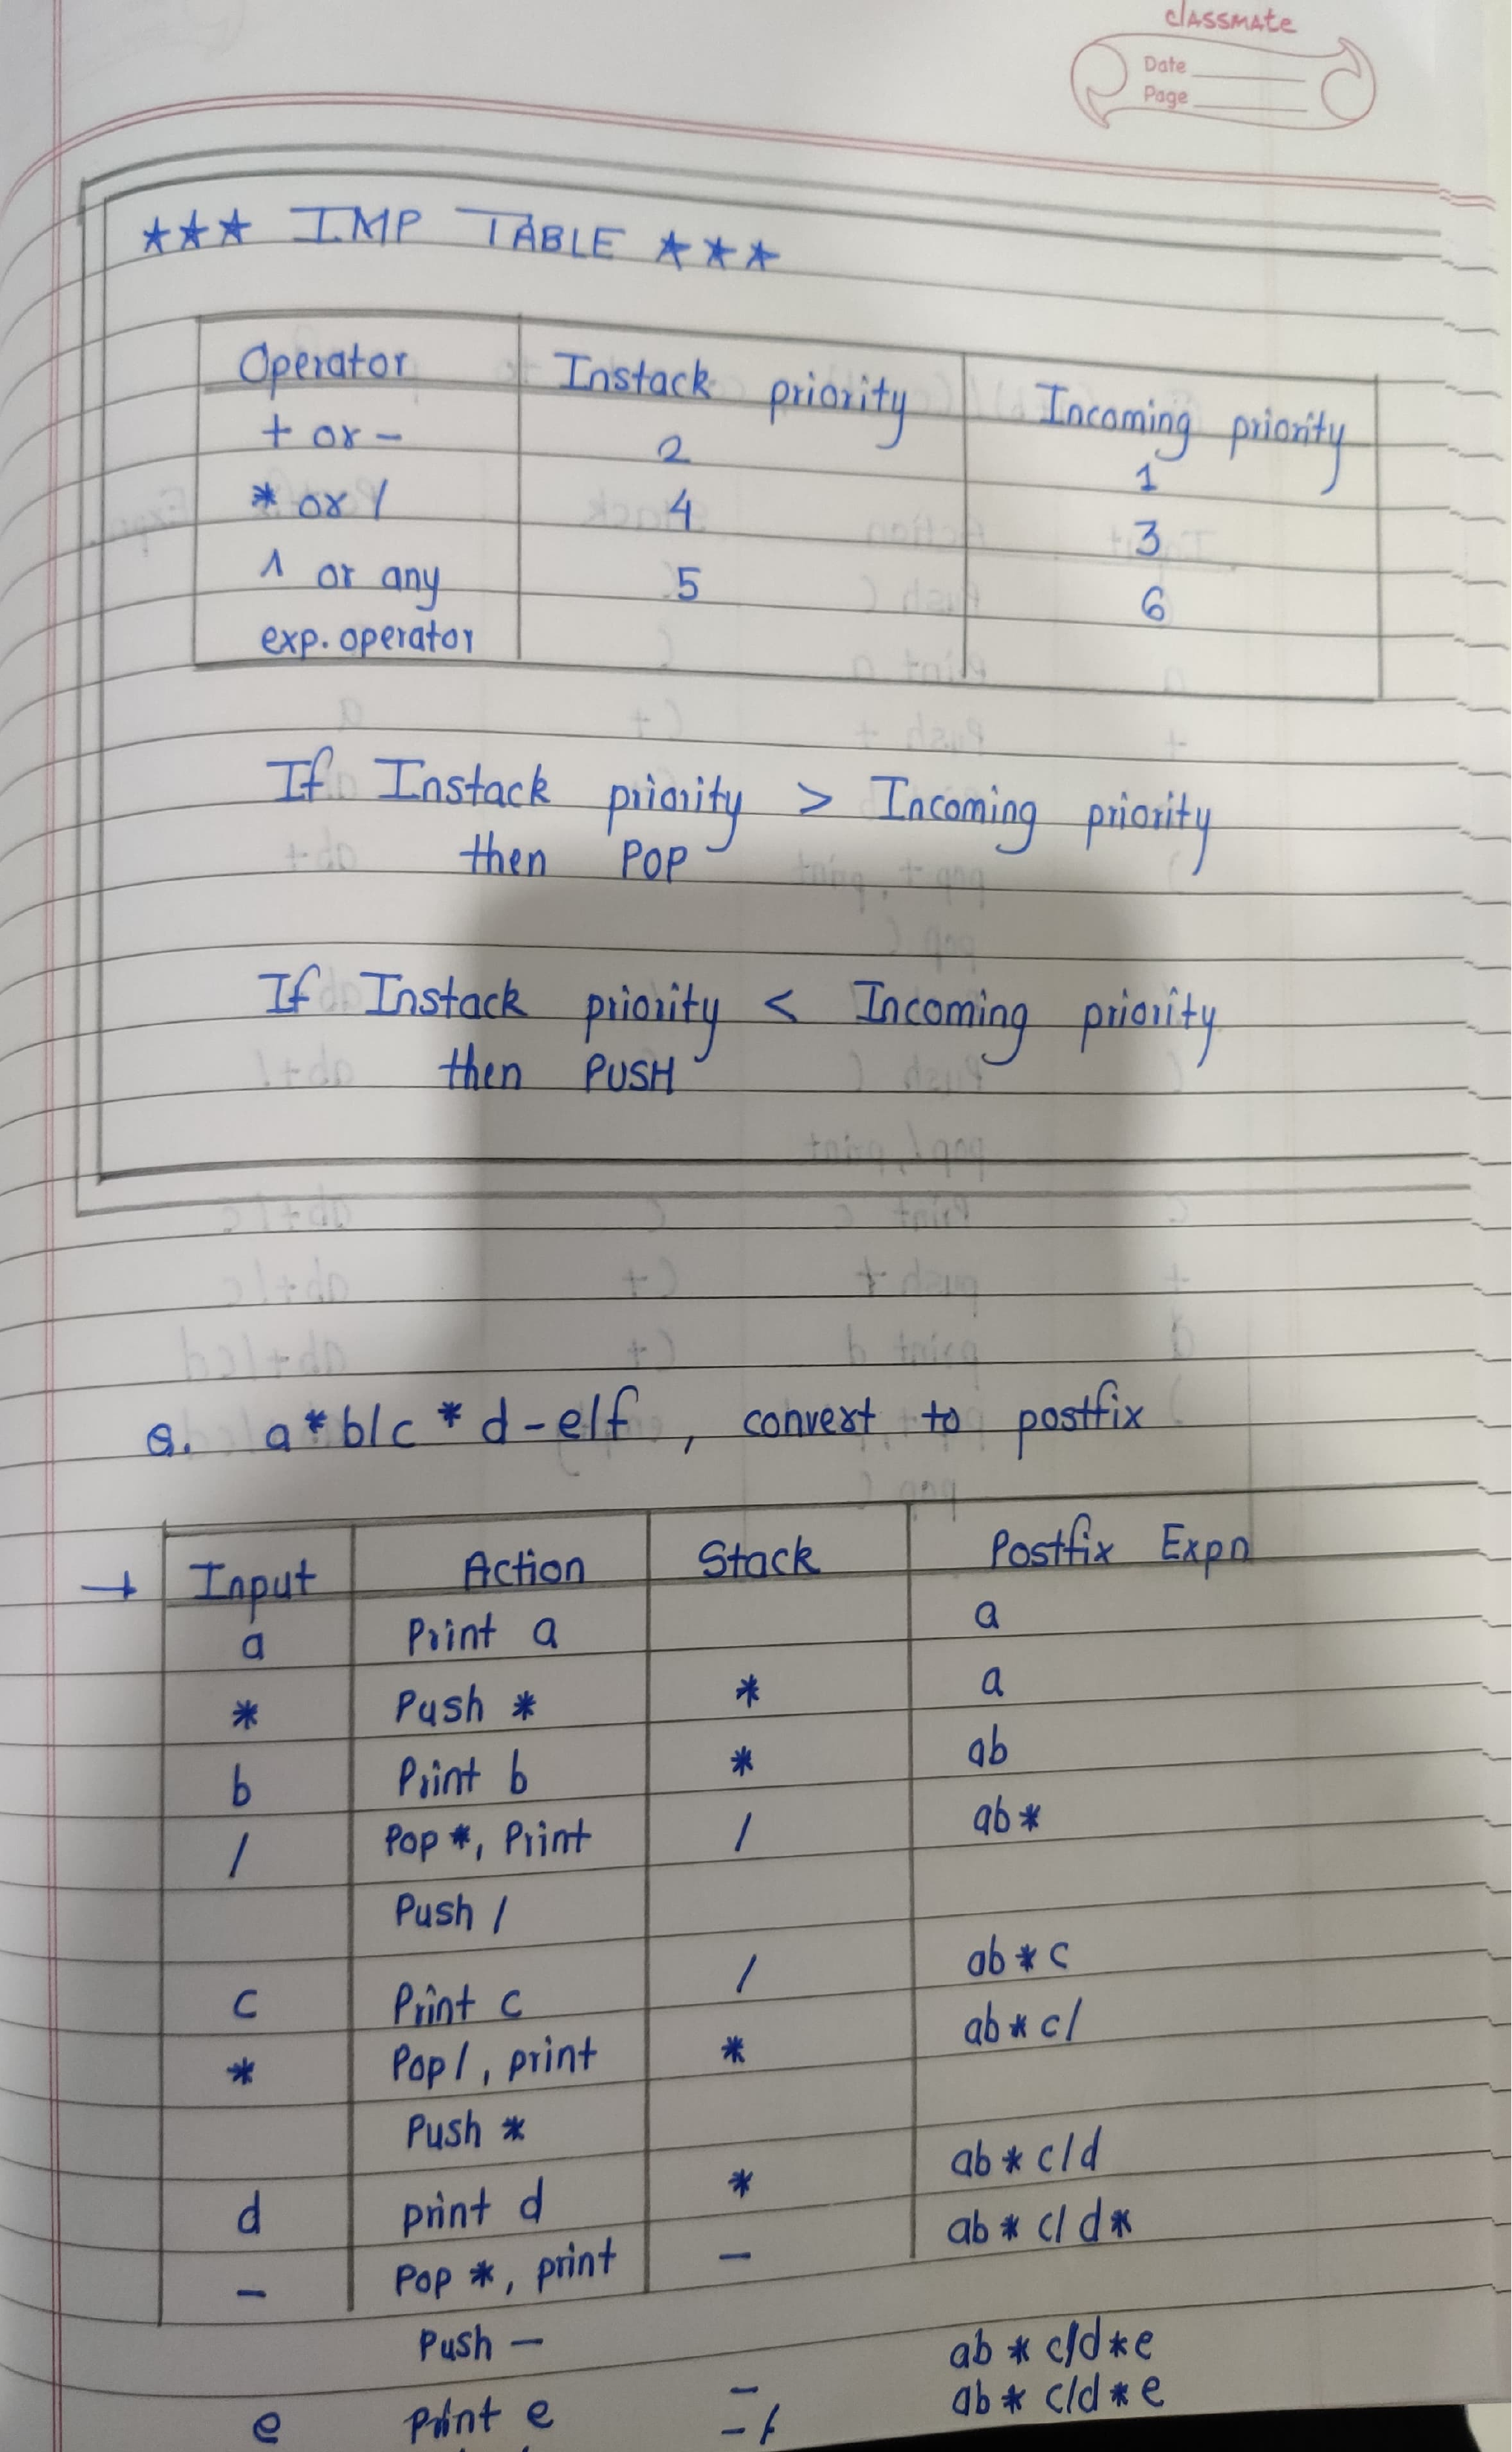 classmate
Date
Page
★★★ IMP TABLE ★★★
Operator Instack priority Incoming priority
+ or - 2 1
* or / 4 3
^ or any 5 6
exp. operator
If Instack priority > Incoming priority
then POP
If Instack priority < Incoming priority
then PUSH
Q. a*b/c*d-e/f, convert to postfix
→ Input Action Stack Postfix Expn
a Print a a
* Push * * a
b Print b * ab
/ Pop *, Print / ab*
Push /
c Print c / ab*c
* Pop /, print * ab*c/
Push *
d print d * ab*c/d
- Pop *, print - ab*c/d*
Push - ab*c/d*e
e Print e - ab*c/d*e
-/